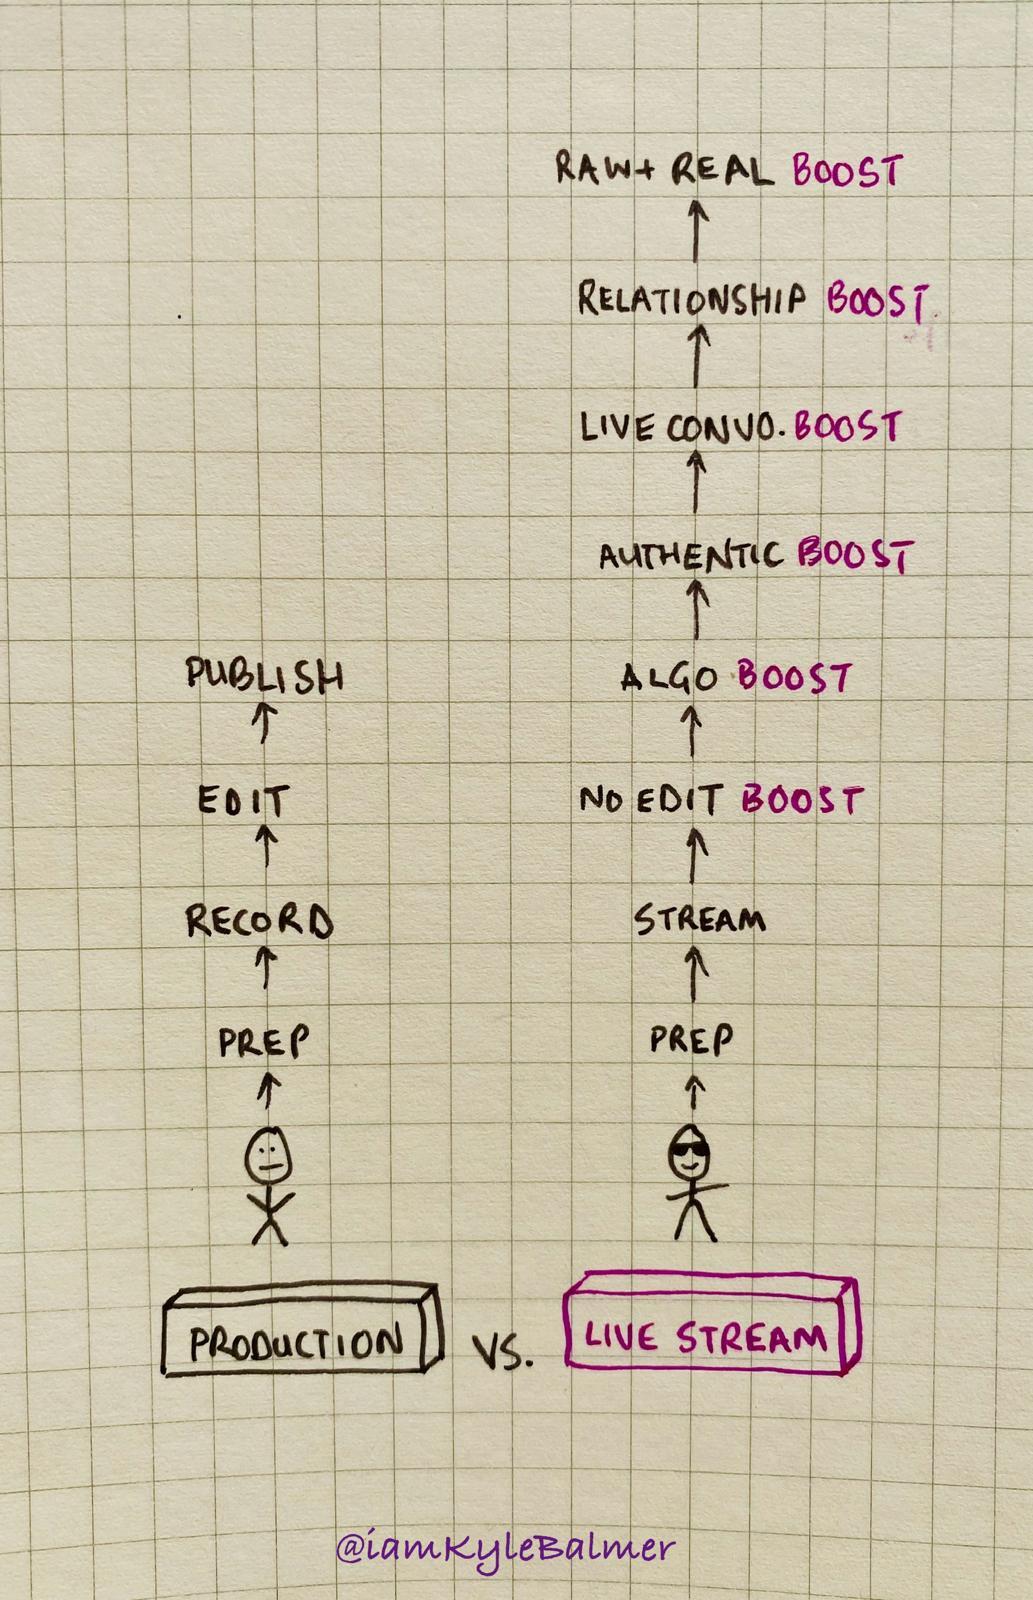 RAW+ REAL BOOST
RELATIONSHIP BOOST
LIVE CONVO. BOOST
AUTHENTIC BOOST
PUBLISH
ALGO BOOST
EDIT
NO EDIT BOOST
RECORD
STREAM
PREP
PREP
PRODUCTION
VS.
LIVE STREAM
@iamKyleBalmer